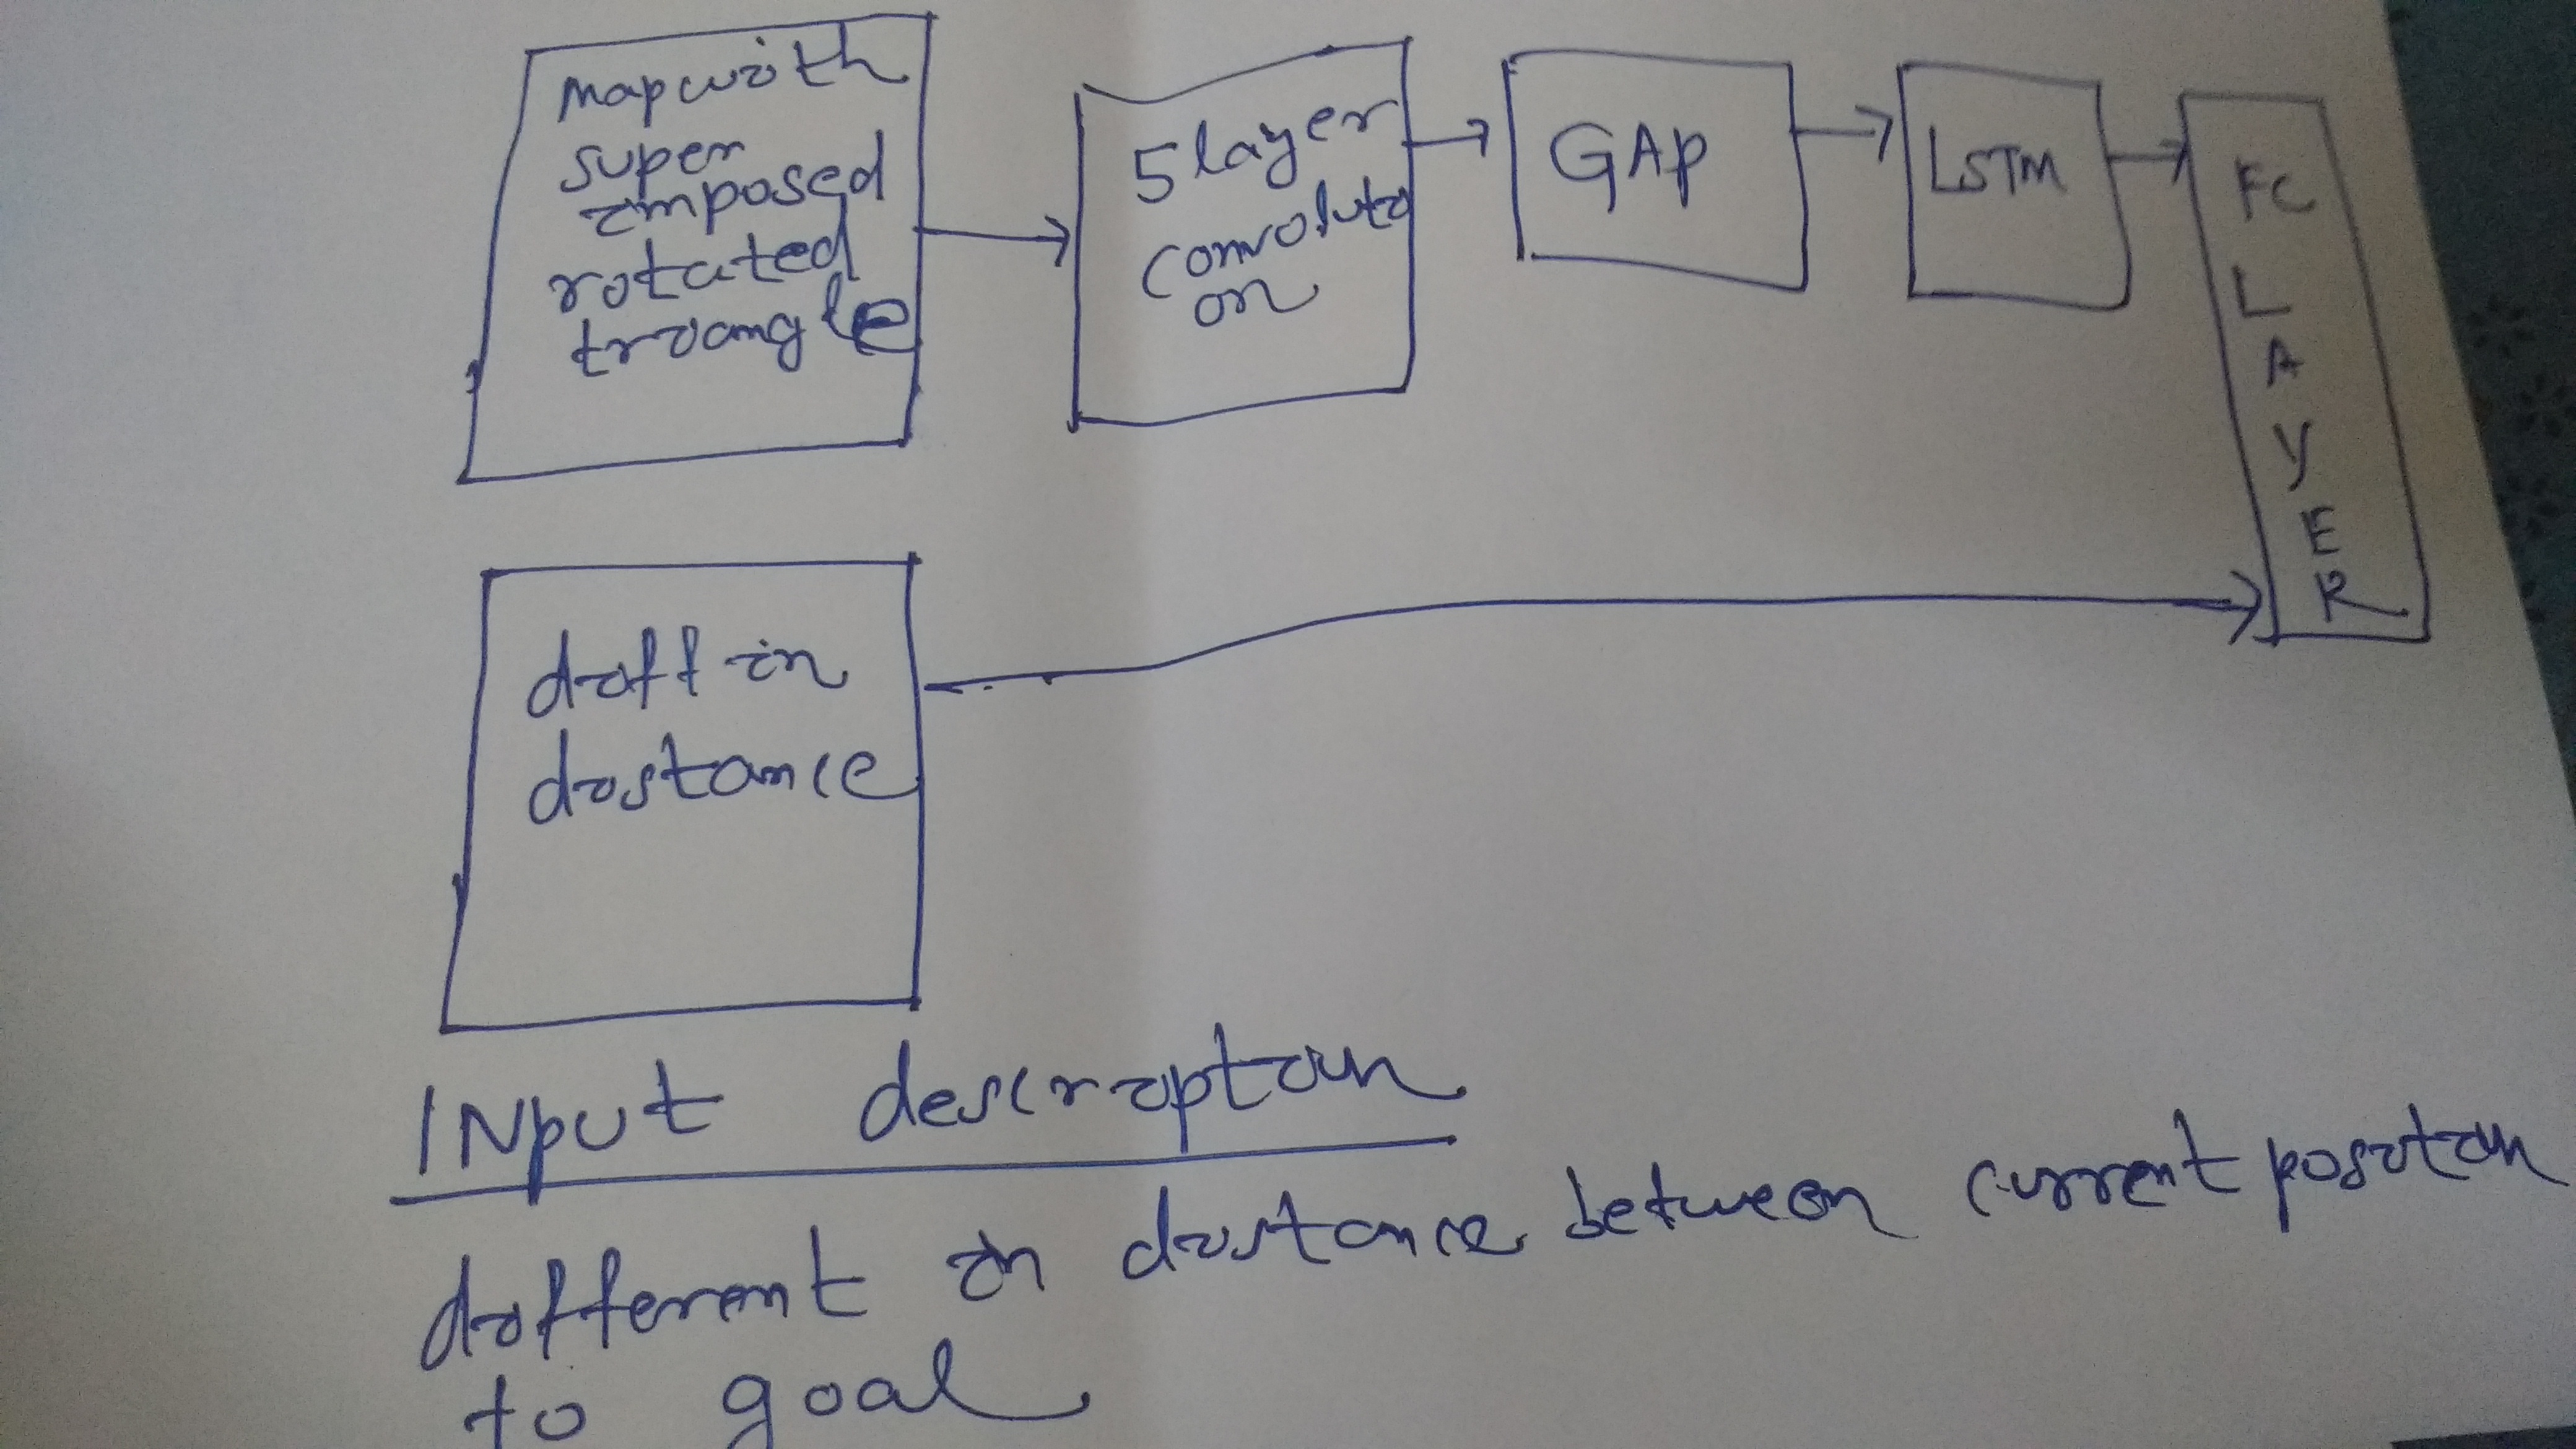 map with
super
imposed
rotated
triangle
5 layer
convoluti
on
GAP
LSTM
FC
L
A
Y
E
R
diff in
distance
INput description
different in distance between current position
to goal